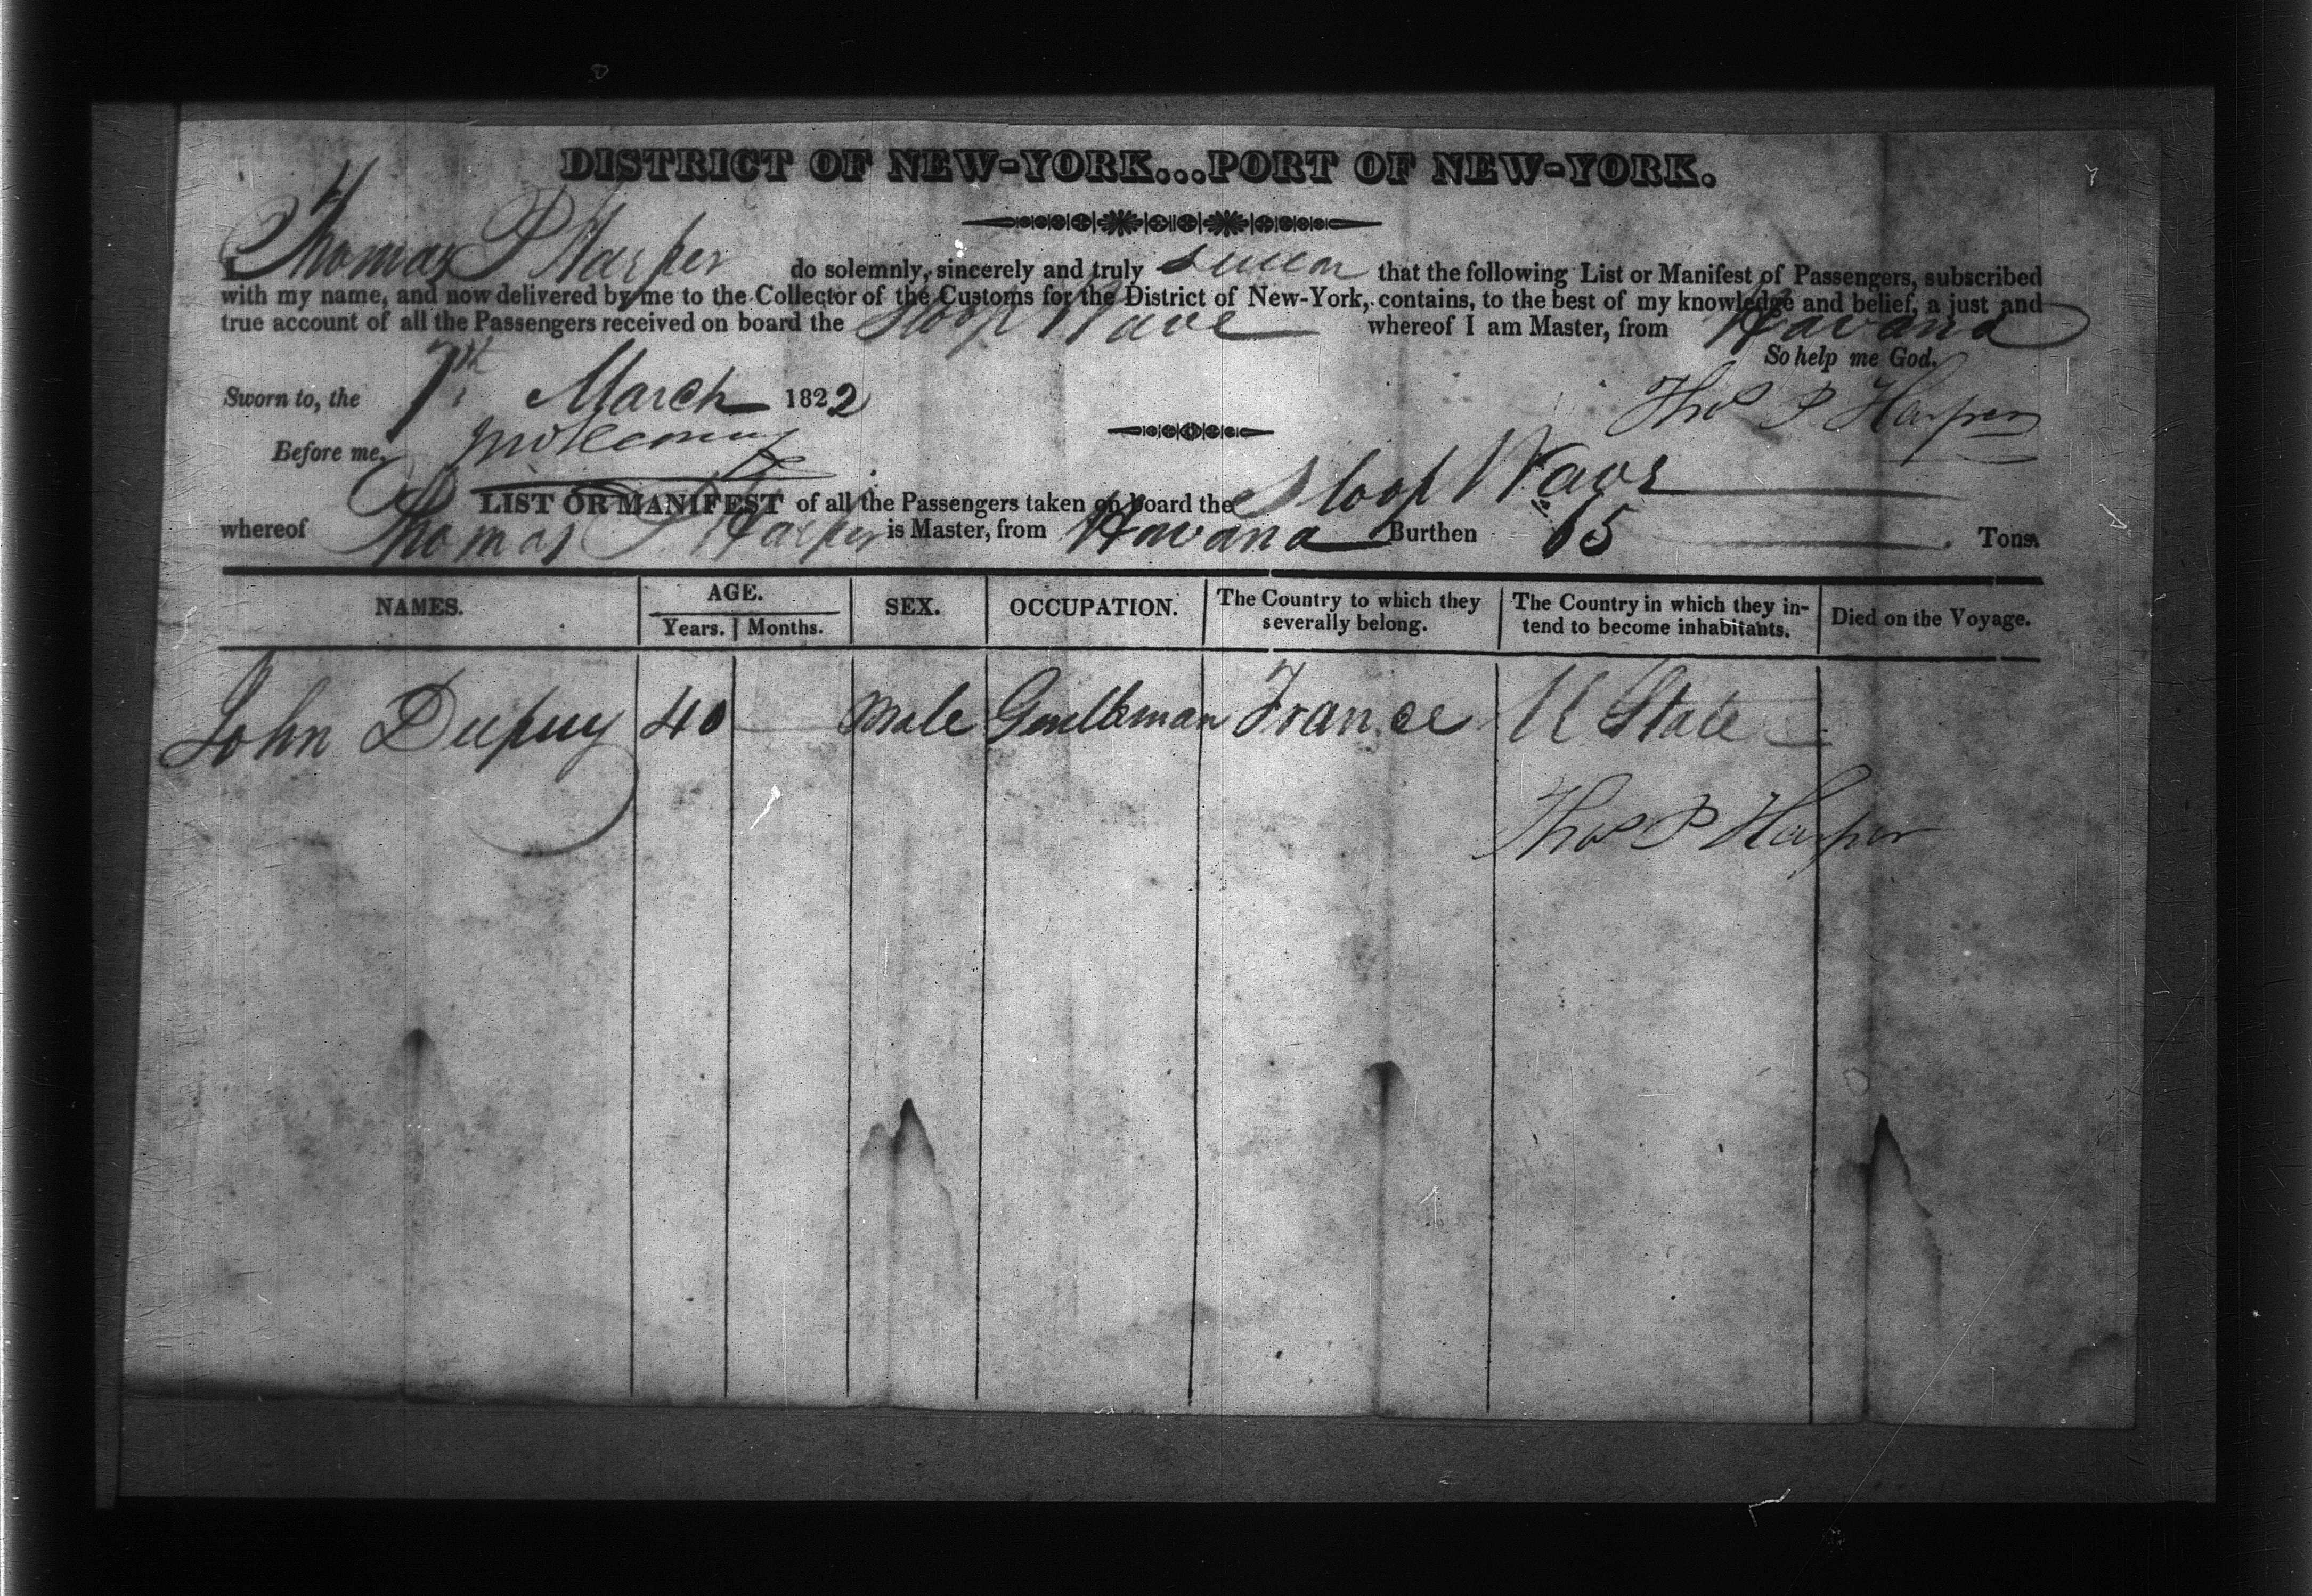 DISTRICT OF NEW-YORK...PORT OF NEW-YORK.
I Thomas P Harper do solemnly, sincerely and truly swear that the following List or Manifest of Passengers, subscribed
with my name, and now delivered by me to the Collector of the Customs for the District of New-York, contains, to the best of my knowledge and belief, a just and
true account of all the Passengers received on board the Sloop Wave whereof I am Master, from Havana
So help me God.
Sworn to, the 7th March 1822
Thos P Harper
Before me,
LIST OR MANIFEST of all the Passengers taken on board the Sloop Wave
whereof Thomas P Harper is Master, from Havana Burthen 65 Tons.
NAMES. AGE. SEX. OCCUPATION. The Country to which they severally belong. The Country in which they in-tend to become inhabitants. Died on the Voyage.
Years. Months.
John Dupuy 40 Male Gentleman France U State
Thos P Harper